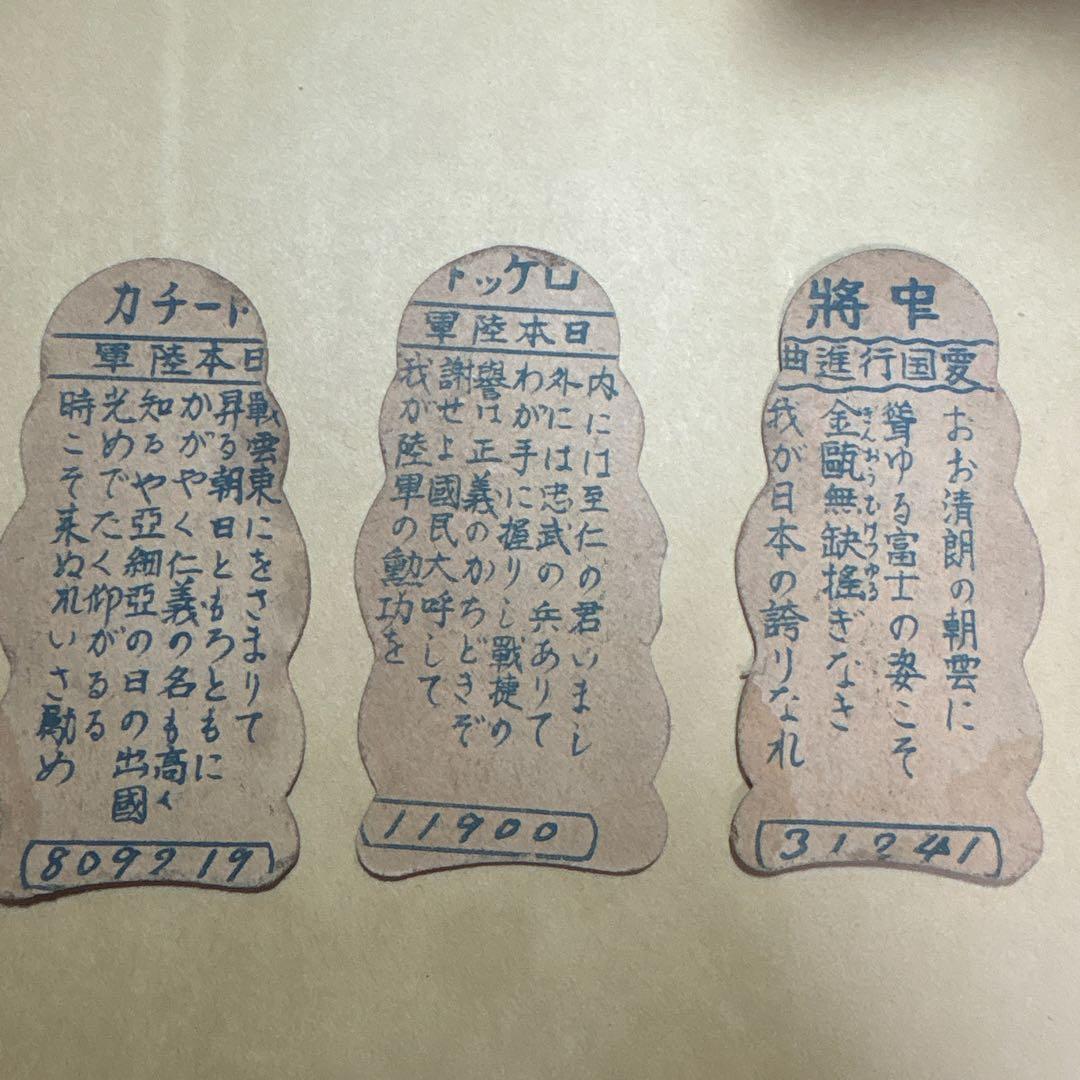 トーチカ
日本陸軍
戰雲東にをさまりて
昇る朝日ともろともに
かがやく仁義の名も高く
知るや亞細亞の日の出國
光めでたく仰がるる
時こそ来ぬれいさ勵め
ロケット
日本陸軍
内には至仁の君いまし
外には忠武の兵ありて
わが手に握りし戰捷の
譽は正義のかちどきぞ
謝せよ國民大呼して
我が陸軍の勲功を
11900
中將
愛国行進曲
おお清朗の朝雲に
聳ゆる富士の姿こそ
金甌無缺搖ぎなき
きんおうむけつゆる
我が日本の誇りなれ
31241